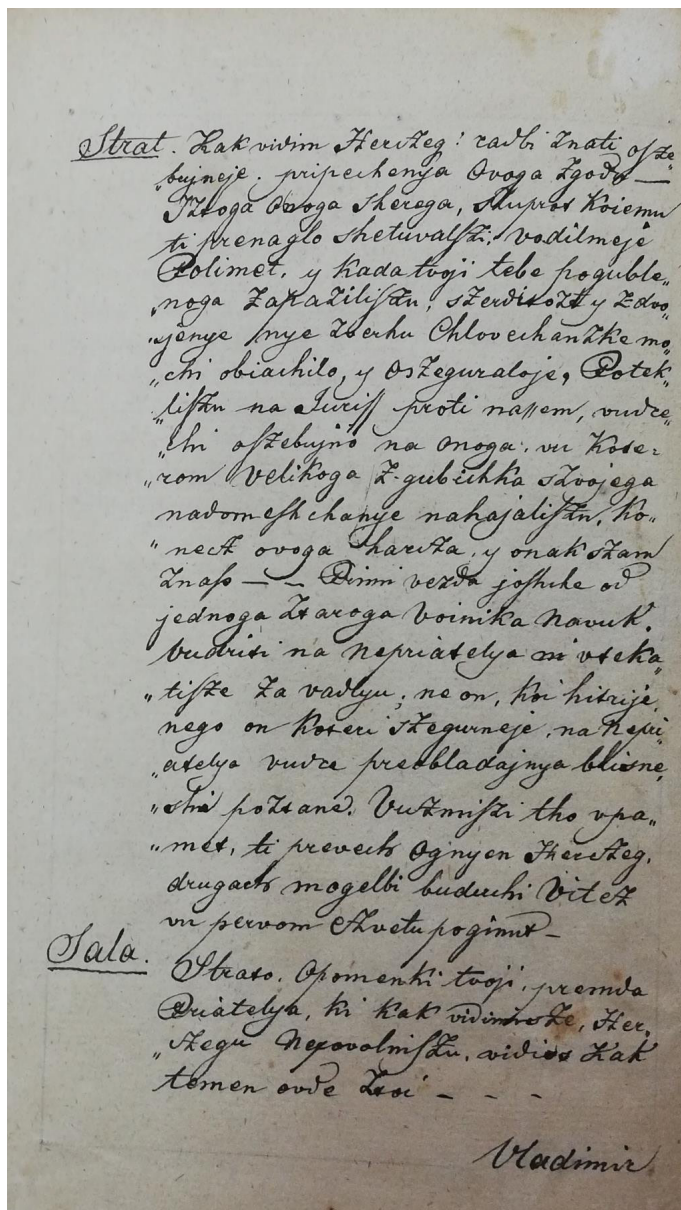 Strat. Kak vidim Herczeg! radbi znati osze„
„bujneje. pripechenya Ovoga Zgodo —
Iztoga Ovoga Sherega, szuprot Koiemu
ti prenaglo shetuvalszi, vodilmeje
Polimet, y kada tvoji tebe poguble„
„noga zapaziliszu, szerditozt y zdvo„
„jenye nye zverhu Chlovechanzke mo„
„chi obiachilo, y oszeguraloje, Potek„
„liszu na Juriss proti nassem, vudre„
„chi oszebujno na onoga, vu Kote„
„rom velikoga z-gubichka szvojega
nadomeshchanye nahajaliszu, Ko„
„necz ovoga harcza, y onak szam
Znass — — Primi vezda joshche od
jednoga ztaroga Voinika Navuk.
Vudriti na Nepriatelya ni vteka„
„tisze za vadlyu, ne on, Koi hitrije,
nego on Koteri szegurneje, na Nepri„
„atelya vudre preobladajnya blisne„
„shi poztane. Vuzmiszi tho vpa„
„met, ti prevech Ognyen Herczeg,
drugach mogelbi buduchi Vitez
vu pervom Czvetu poginut —
Sala. Strato. Opomenki tvoji, premda
Priatelya, ki kak vidimsze, Her„
„czegu Nepovolniszu, vidiss Kak
temen ovde ztoi — — —
Vladimir